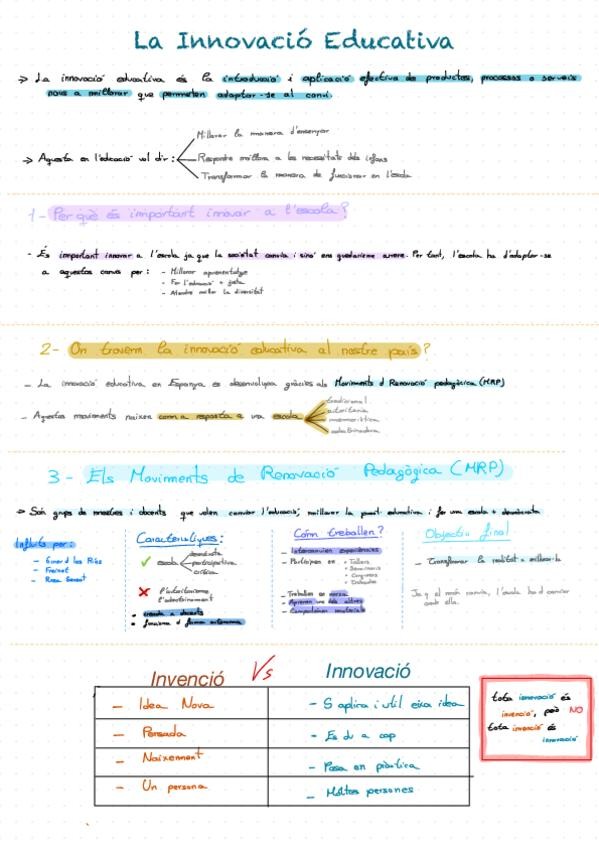 La Innovació Educativa
La innovació educativa és la introducció i aplicació efectiva de productes, processos o serveis
nous a millorar que permeten adaptar-se al canvi.
Aquesta en l'educació vol dir:
Millorar la manera d'ensenyar
Respondre millora a les necessitats dels infans
Transformar la manera de funcionar en l'escola
1- Per què és important innovar a l'escola?
- És important innovar a l'escola ja que la societat canvia i sinó ens quedaríem enrere. Per tant, l'escola ha d'adaptar-se
a aquests canvis per:
- Millorar aprenentatge
- Fer l'educació + justa
- Atendre millor la diversitat
2- On trovem la innovació educativa al nostre país?
- La innovació educativa en Espanya es desenvolupa gràcies als Moviments d Renovació pedagògica (MRP)
- Aquestos moviments naixen com a resposta a una escola
tradicional
autoritària
memorística
adoctrinadora
3 - Els Moviments de Renovació Pedagògica (MRP)
Són grups de mestres i docents que volen canviar l'educació, millorar la educativa i fer una escola + democràta
Influïts per:
- Freinet
- Rosa Sensat
Característiques:
escola
democràta
participativa
crítica
l'autoritarisme
l'adoctrinament
creada x docents
funciona d forma autònoma
Cóm treballen?
- Intercanvien experiències
- Participen en
Tallers
Seminaris
Congresos
Trobades
- Treballen en xarxa
- Aprenen uns dels altres
- Comparteixen materials
Objectiu final
- Transformar la realitat + millorar-la
Ja q el món canvia, l'escola ha d canviar
amb ella.
Invenció Vs Innovació
- Idea Nova
- S'aplica i útil eixa idea
- Pensada
- Es du a cap
- Naixement
- Posa en pràctica
- Un persona
- Moltes persones
tota innovació és
invenció, però NO
tota invenció és
innovació